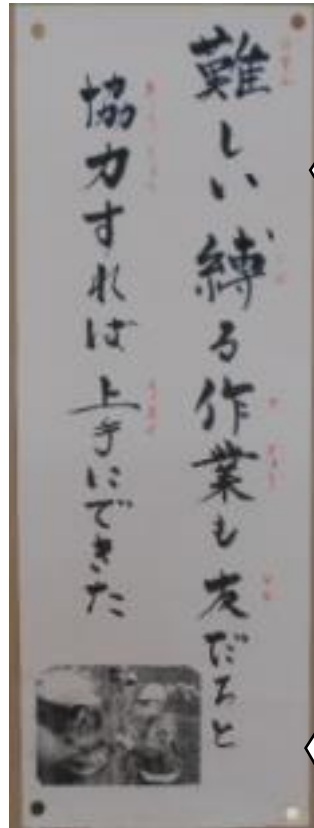 難しい縛る作業も友だちと
協力すれば上手にできた